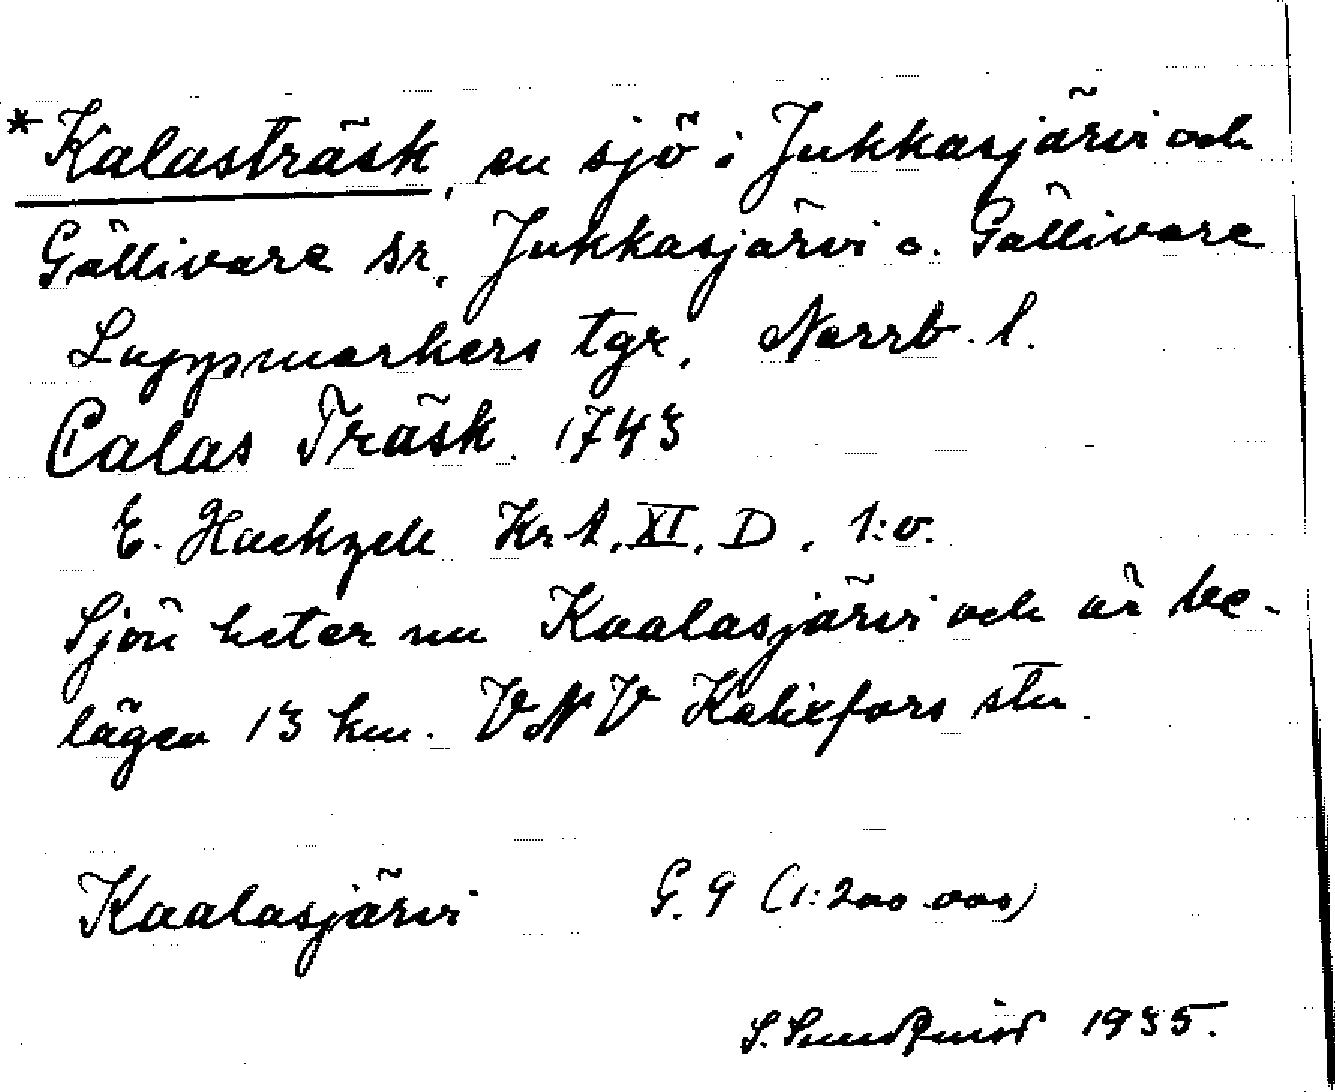 *Kalasträsk, en sjö i Jukkasjärvi och
Gällivare sr, Jukkasjärvi o. Gällivare
Lappmarkers tgr, Norrb. l.
Calas Träsk. 1743
E. Hackzell Kr. A. XI. D. 1:o.
Sjön heter nu Kaalasjärvi och är be-
lägen 13 km. VNV Kalixfors stn.
Kaalasjärvi G. 9 (1:200.000)
S. Sundqvist 1935.